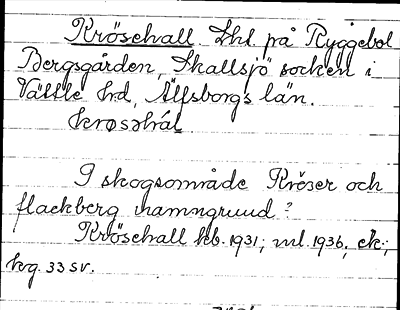 Krösehall Lht på Ryggebol
Bergsgården, Skallsjö socken i
Vättle hd, Älfsborgs län.
krøsəhál
I skogsområde Kröser och
flackberg namngrund?
Krösehall kb. 1931; ml. 1936, ek.;
kg. 33 sv.